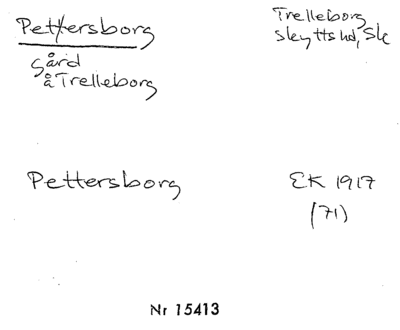 Pettersborg
Trelleborg
Skyttshd, Sk
gård
å Trelleborg
Pettersborg
EK 1917
(71)
Nr 15413